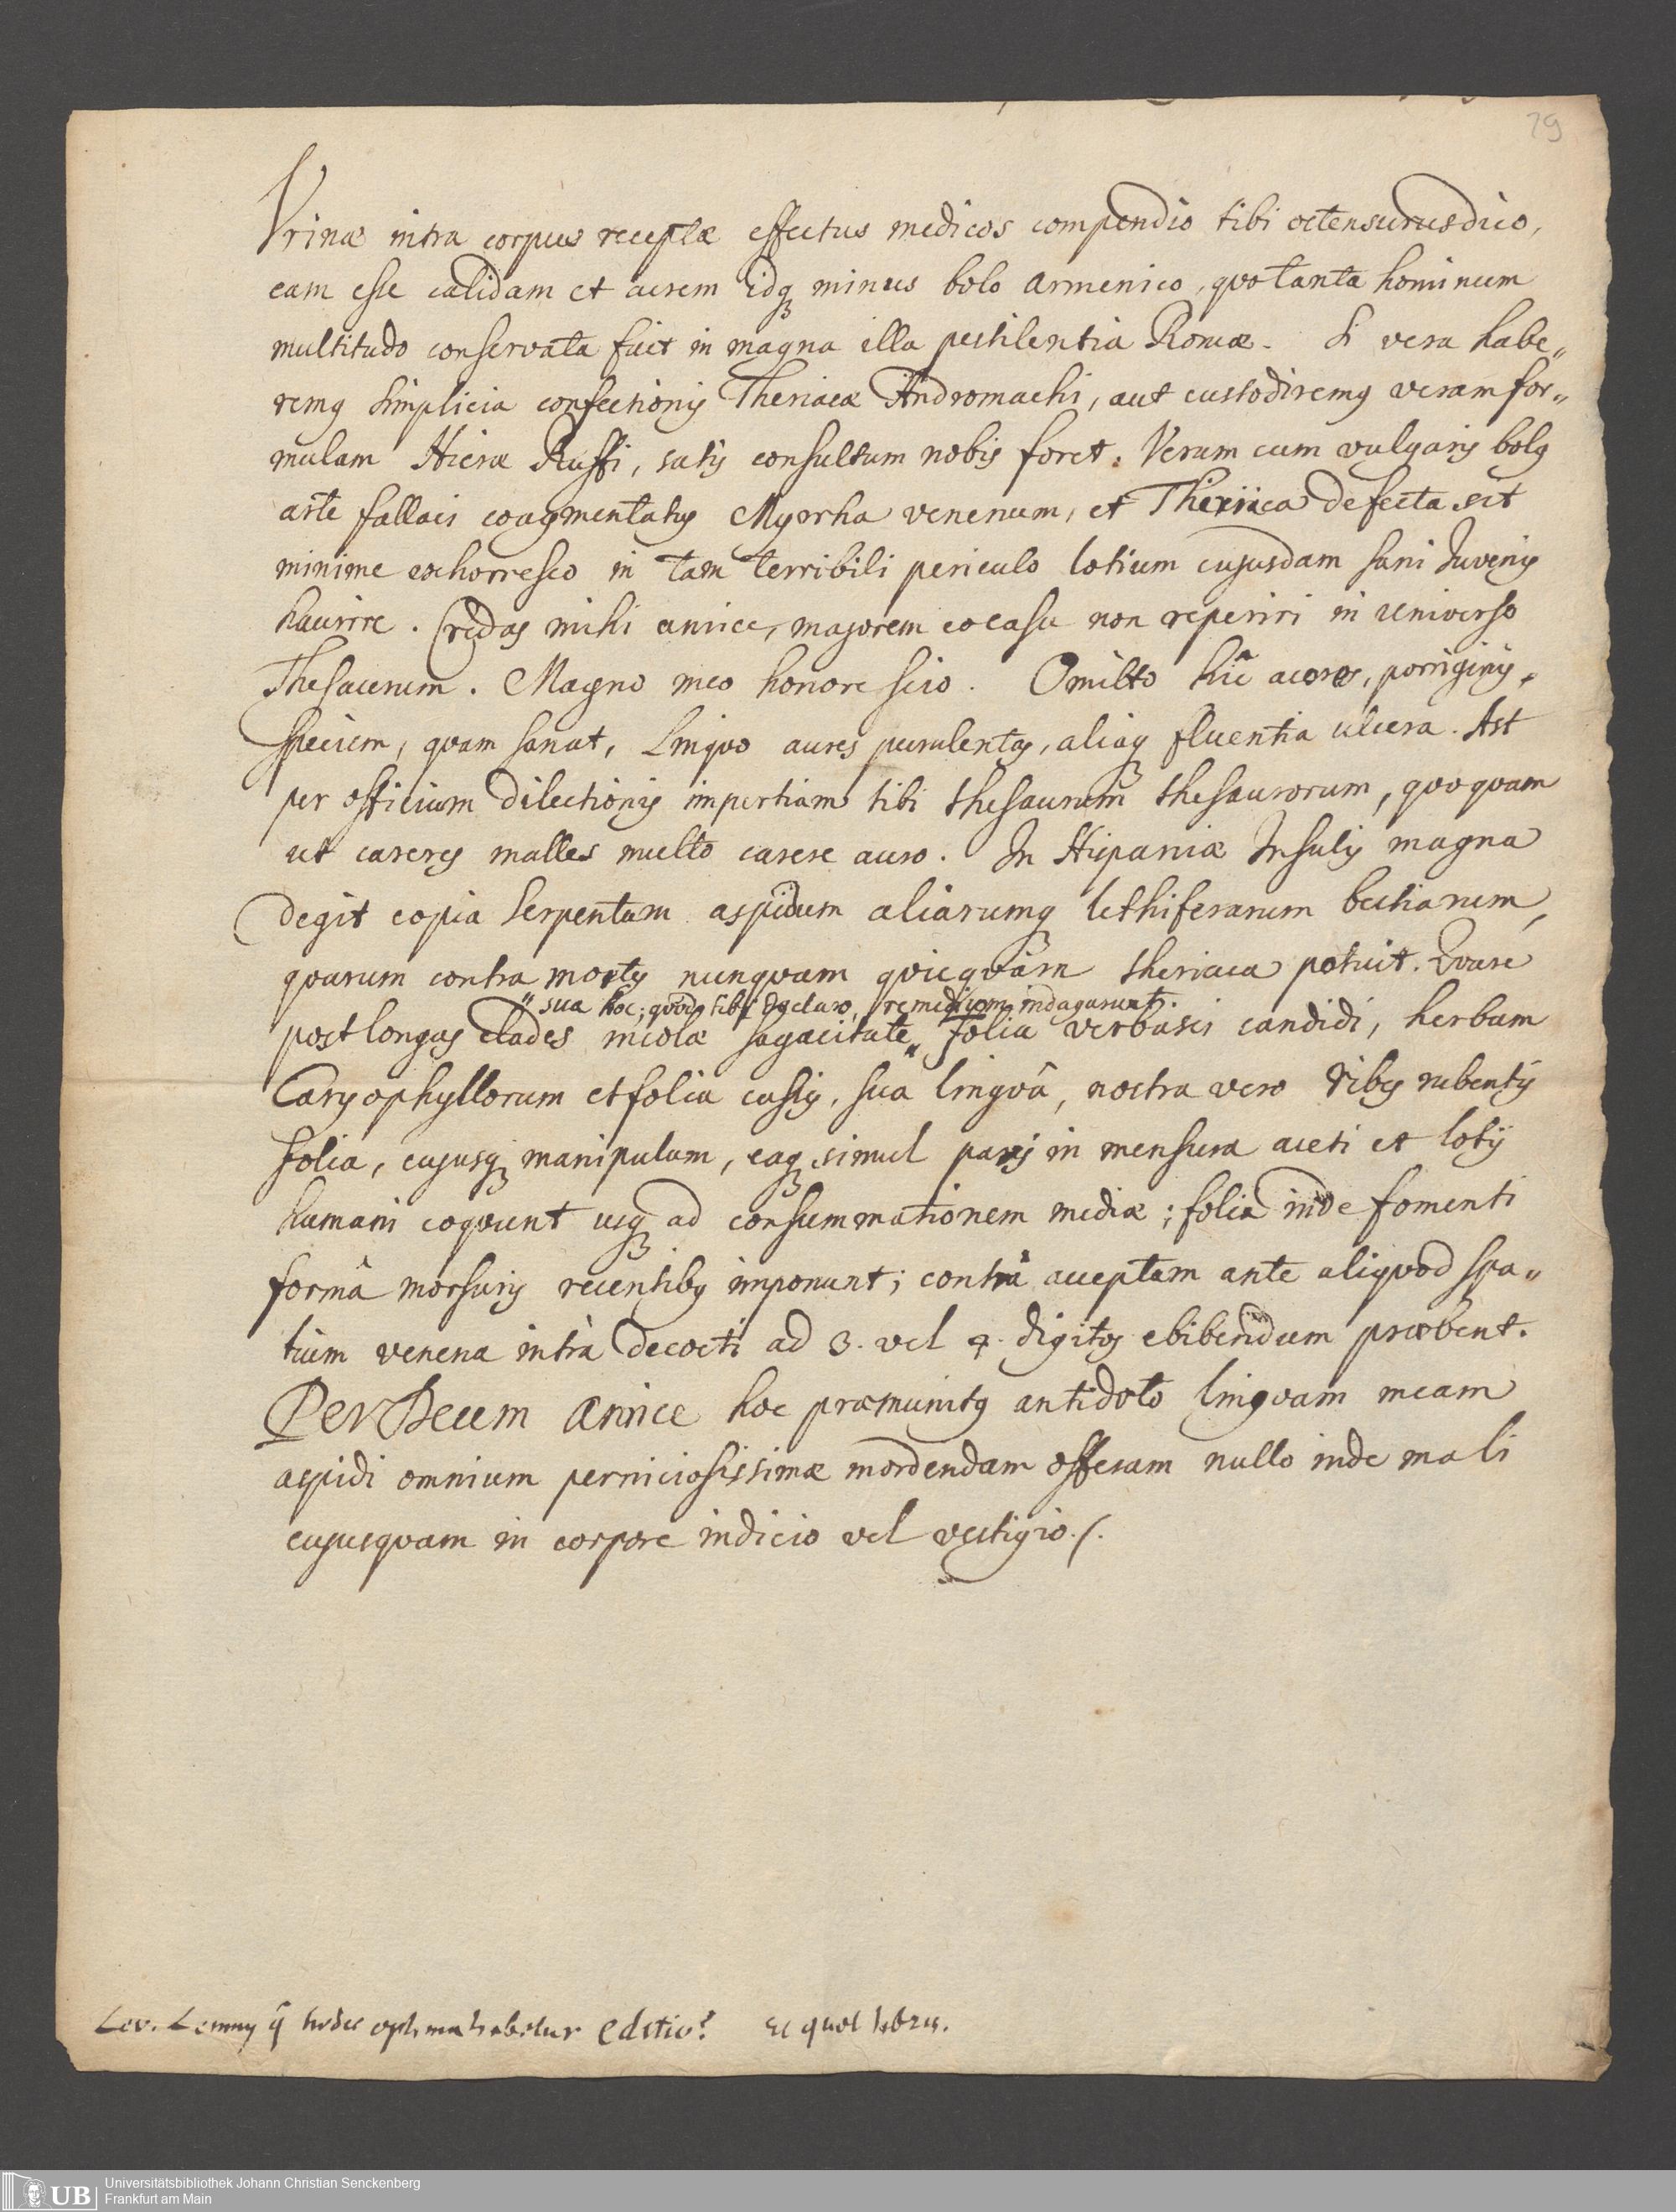 79
Vrinæ intra corpus receptæ effectus medicos compendio tibi ostensurus dico,
eam esse calidam et acrem idq; minus bolo armenico, quo tanta hominum
multitudo conservata fuit in magna illa pestilentia Romæ. Si vera habe„
remq simplicia confectionis Theriacæ Andromachi, aut custodiremq veram for„
mulam Hieræ Ruffi, satis consultum nobis foret. Verum cum vulgaris bolq
arte fallaci coagmentatus Myrrha venenum, et Theriaca defecta sit
minime exhorresco in tam terribili periculo lotium cujusdam sani Juvenis
haurire. Credas mihi amice, majorem eo casu non reperiri in universo
Thesaurum. Magno meo honore scio. Omitto hic acores, porriginis
speciem, quam sanat, Linquo aures purulentas, aliaq; fluentia ulcera. Ast
per officium dilectionis impertiam tibi thesaurum thesaurorum, quoquam
ut careres malles multo carere auro. In Hispaniæ Insulis magna
degit copia serpentum aspidum aliarumq; lethiferarum bestiarum,
quarum contra morsus nunquam quicquam theriaca potuit. Quare
„ sua hoc; quod tibi declaro, remedium indagarunt.
post longas clades incolæ sagacitate „ folia verbasci candidi, herbam
Caryophyllorum et folia casis, sua lingvâ, nostra vero ribes rubentis
folia, cujusq; manipulum, eaq; simul paris in mensura aceti et lotij
humani coquunt usq; ad consummationem mediæ; folia inde fomenti
formâ morsuris recentibq imponunt; contrà acceptam ante aliquod spa„
tium venena intrà decocti ad 3. vel 4. digitos ebibendum præbent.
Per Deum amice hoc præmunitq antidoto linguam meam
aspidi omnium perniciosissimæ mordendam offeram nullo inde mali
cujusquam in corpore indicio vel vestigio./.
Lev. Lemny q̃ hodie optima habetur editio? Et quot libris.
Universitätsbibliothek Johann Christian Senckenberg
UB Frankfurt am Main